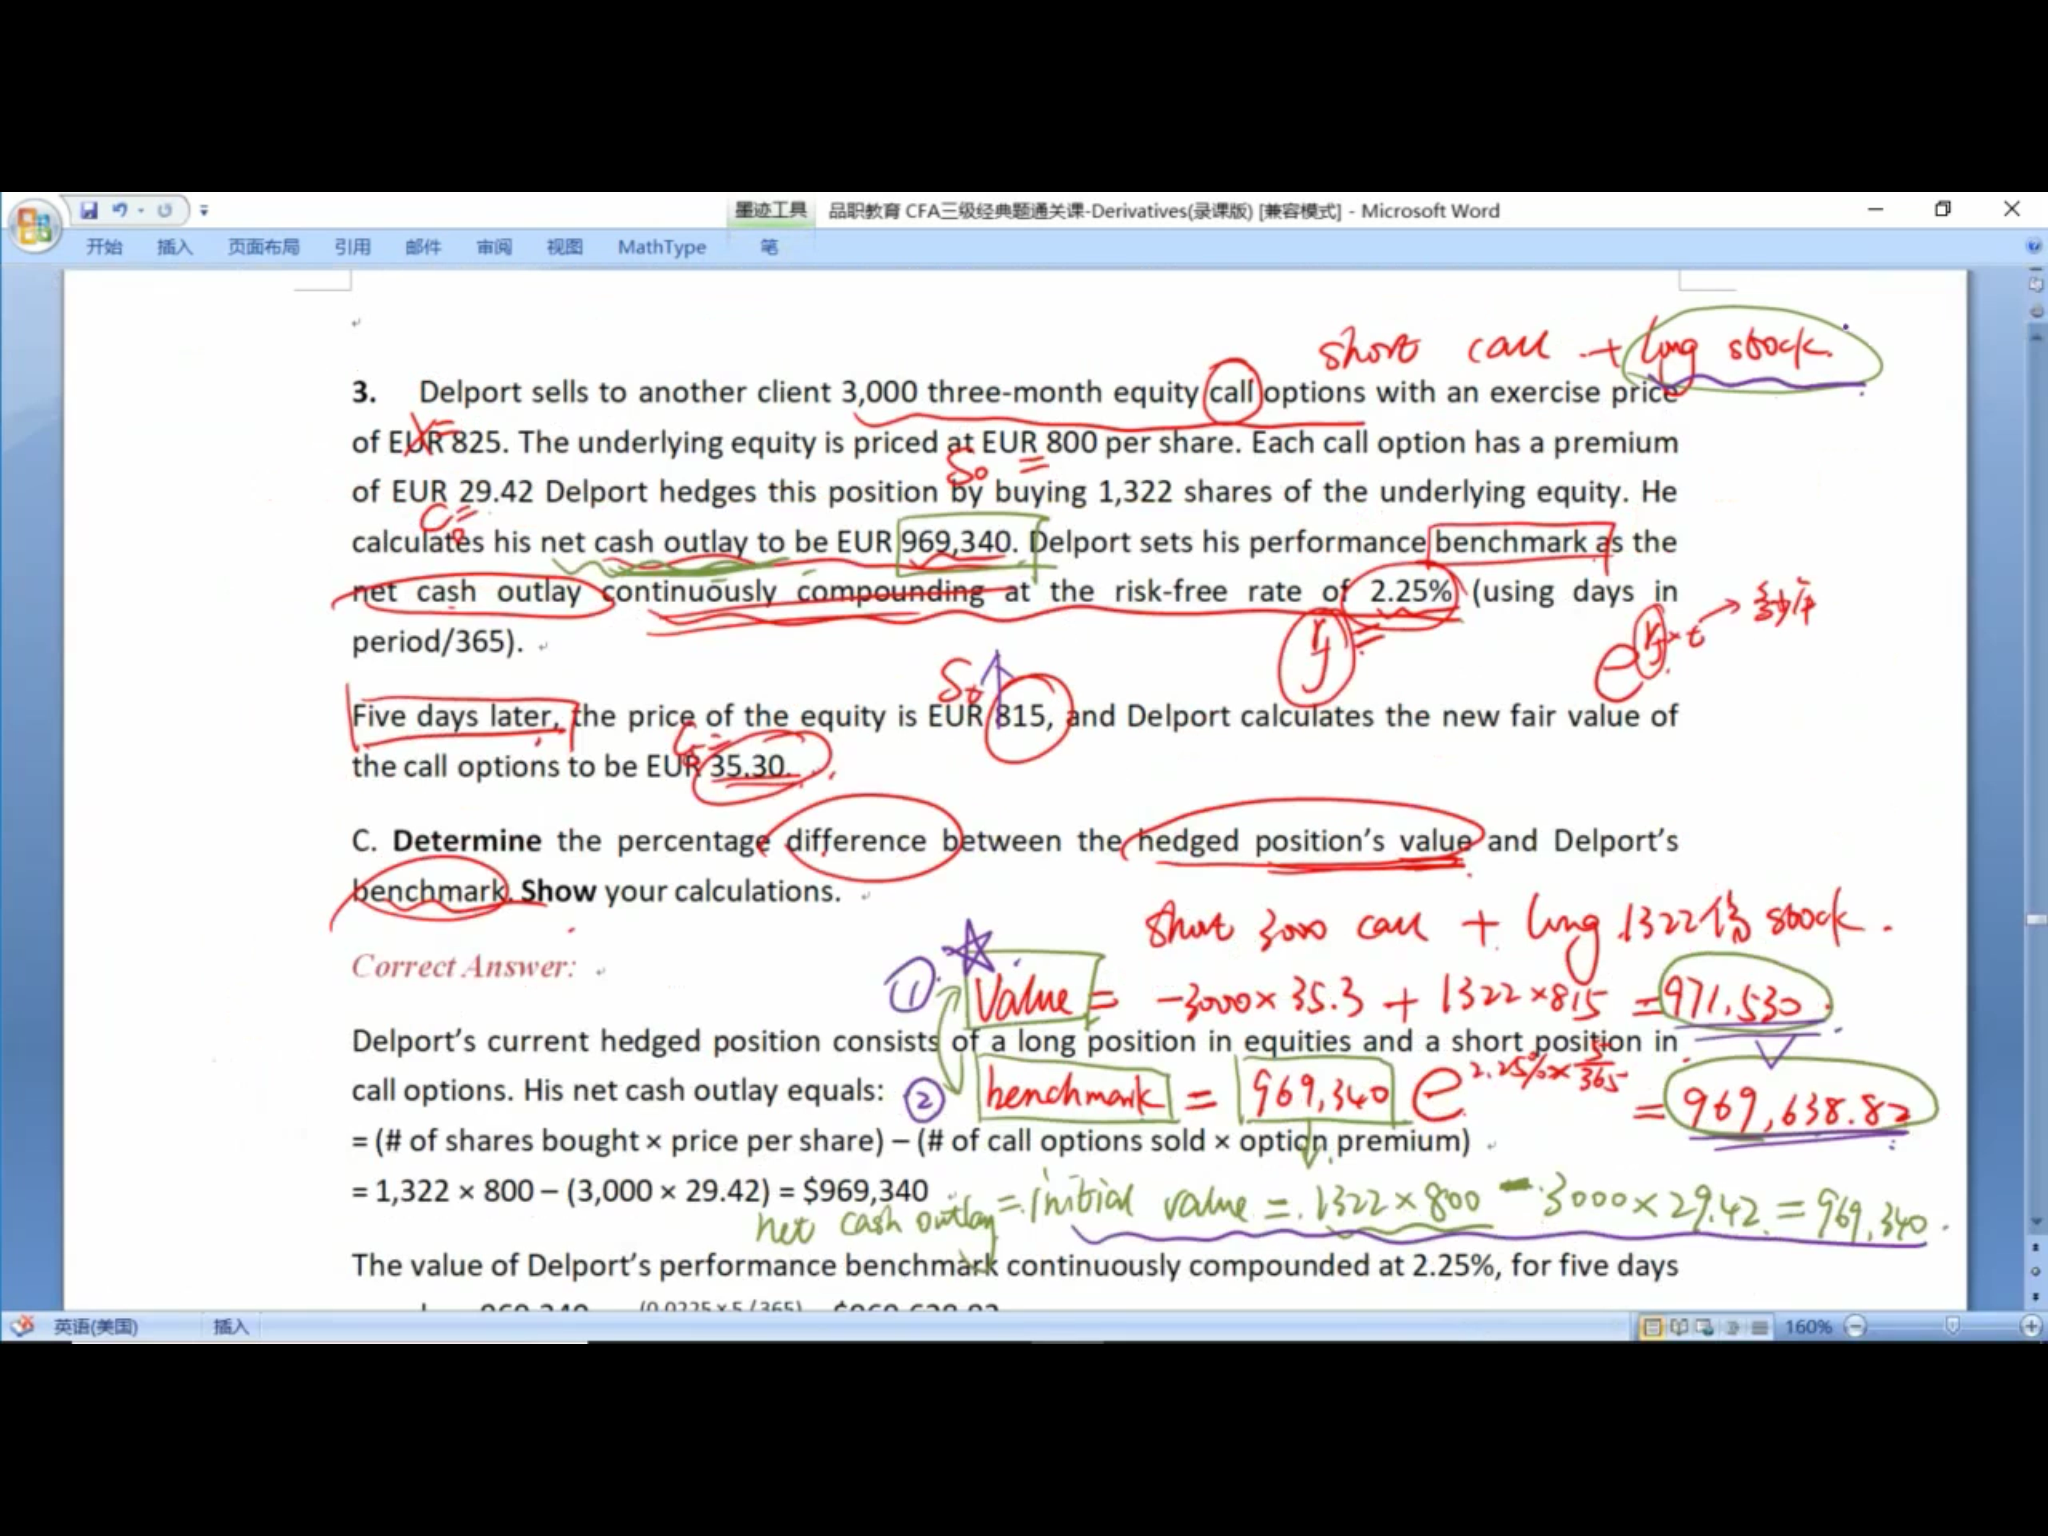 墨迹工具 品职教育 CFA三级经典题通关课-Derivatives(录课版) [兼容模式] - Microsoft Word
开始 插入 页面布局 引用 邮件 审阅 视图 MathType 笔
short call + long stock.
3. Delport sells to another client 3,000 three-month equity call options with an exercise price
X=
of EUR 825. The underlying equity is priced at EUR 800 per share. Each call option has a premium
S0 =
of EUR 29.42 Delport hedges this position by buying 1,322 shares of the underlying equity. He
C0=
calculates his net cash outlay to be EUR 969,340. Delport sets his performance benchmark as the
net cash outlay continuously compounding at the risk-free rate of 2.25% (using days in
rf = e^rf×t → 多少年
period/365).
St
Five days later, the price of the equity is EUR 815, and Delport calculates the new fair value of
the call options to be EUR 35.30.
C. Determine the percentage difference between the hedged position's value and Delport's
benchmark. Show your calculations.
short 3000 call + long 1322份 stock.
Correct Answer:
① Value = -3000×35.3 + 1322×815 = 971,530.
Delport's current hedged position consists of a long position in equities and a short position in
call options. His net cash outlay equals:
② benchmark = 969,340 e^2.25%×5/365 = 969,638.82
= (# of shares bought × price per share) – (# of call options sold × option premium)
= 1,322 × 800 – (3,000 × 29.42) = $969,340
net cash outlay = initial value = 1322×800 - 3000×29.42 = 969,340.
The value of Delport's performance benchmark continuously compounded at 2.25%, for five days
英语(美国) 插入 160%